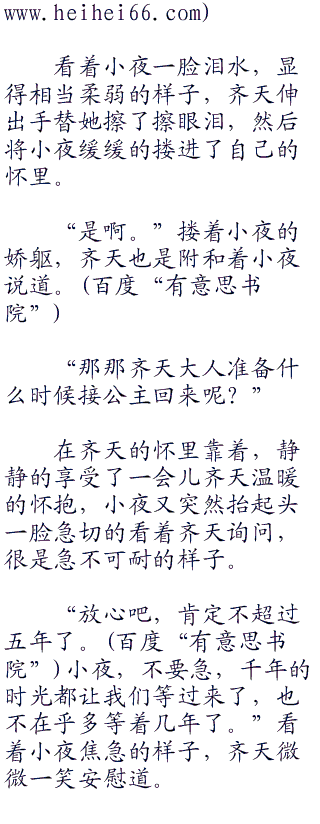 www.heihei66.com)
看着小夜一脸泪水，显
得相当柔弱的样子，齐天伸
出手替她擦了擦眼泪，然后
将小夜缓缓的搂进了自己的
怀里。
“是啊。”搂着小夜的
娇躯，齐天也是附和着小夜
说道。(百度“有意思书
院”)
“那那齐天大人准备什
么时候接公主回来呢？”
在齐天的怀里靠着，静
静的享受了一会儿齐天温暖
的怀抱，小夜又突然抬起头
一脸急切的看着齐天询问，
很是急不可耐的样子。
“放心吧，肯定不超过
五年了。(百度“有意思书
院”)小夜，不要急，千年的
时光都让我们等过来了，也
不在乎多等着几年了。”看
着小夜焦急的样子，齐天微
微一笑安慰道。